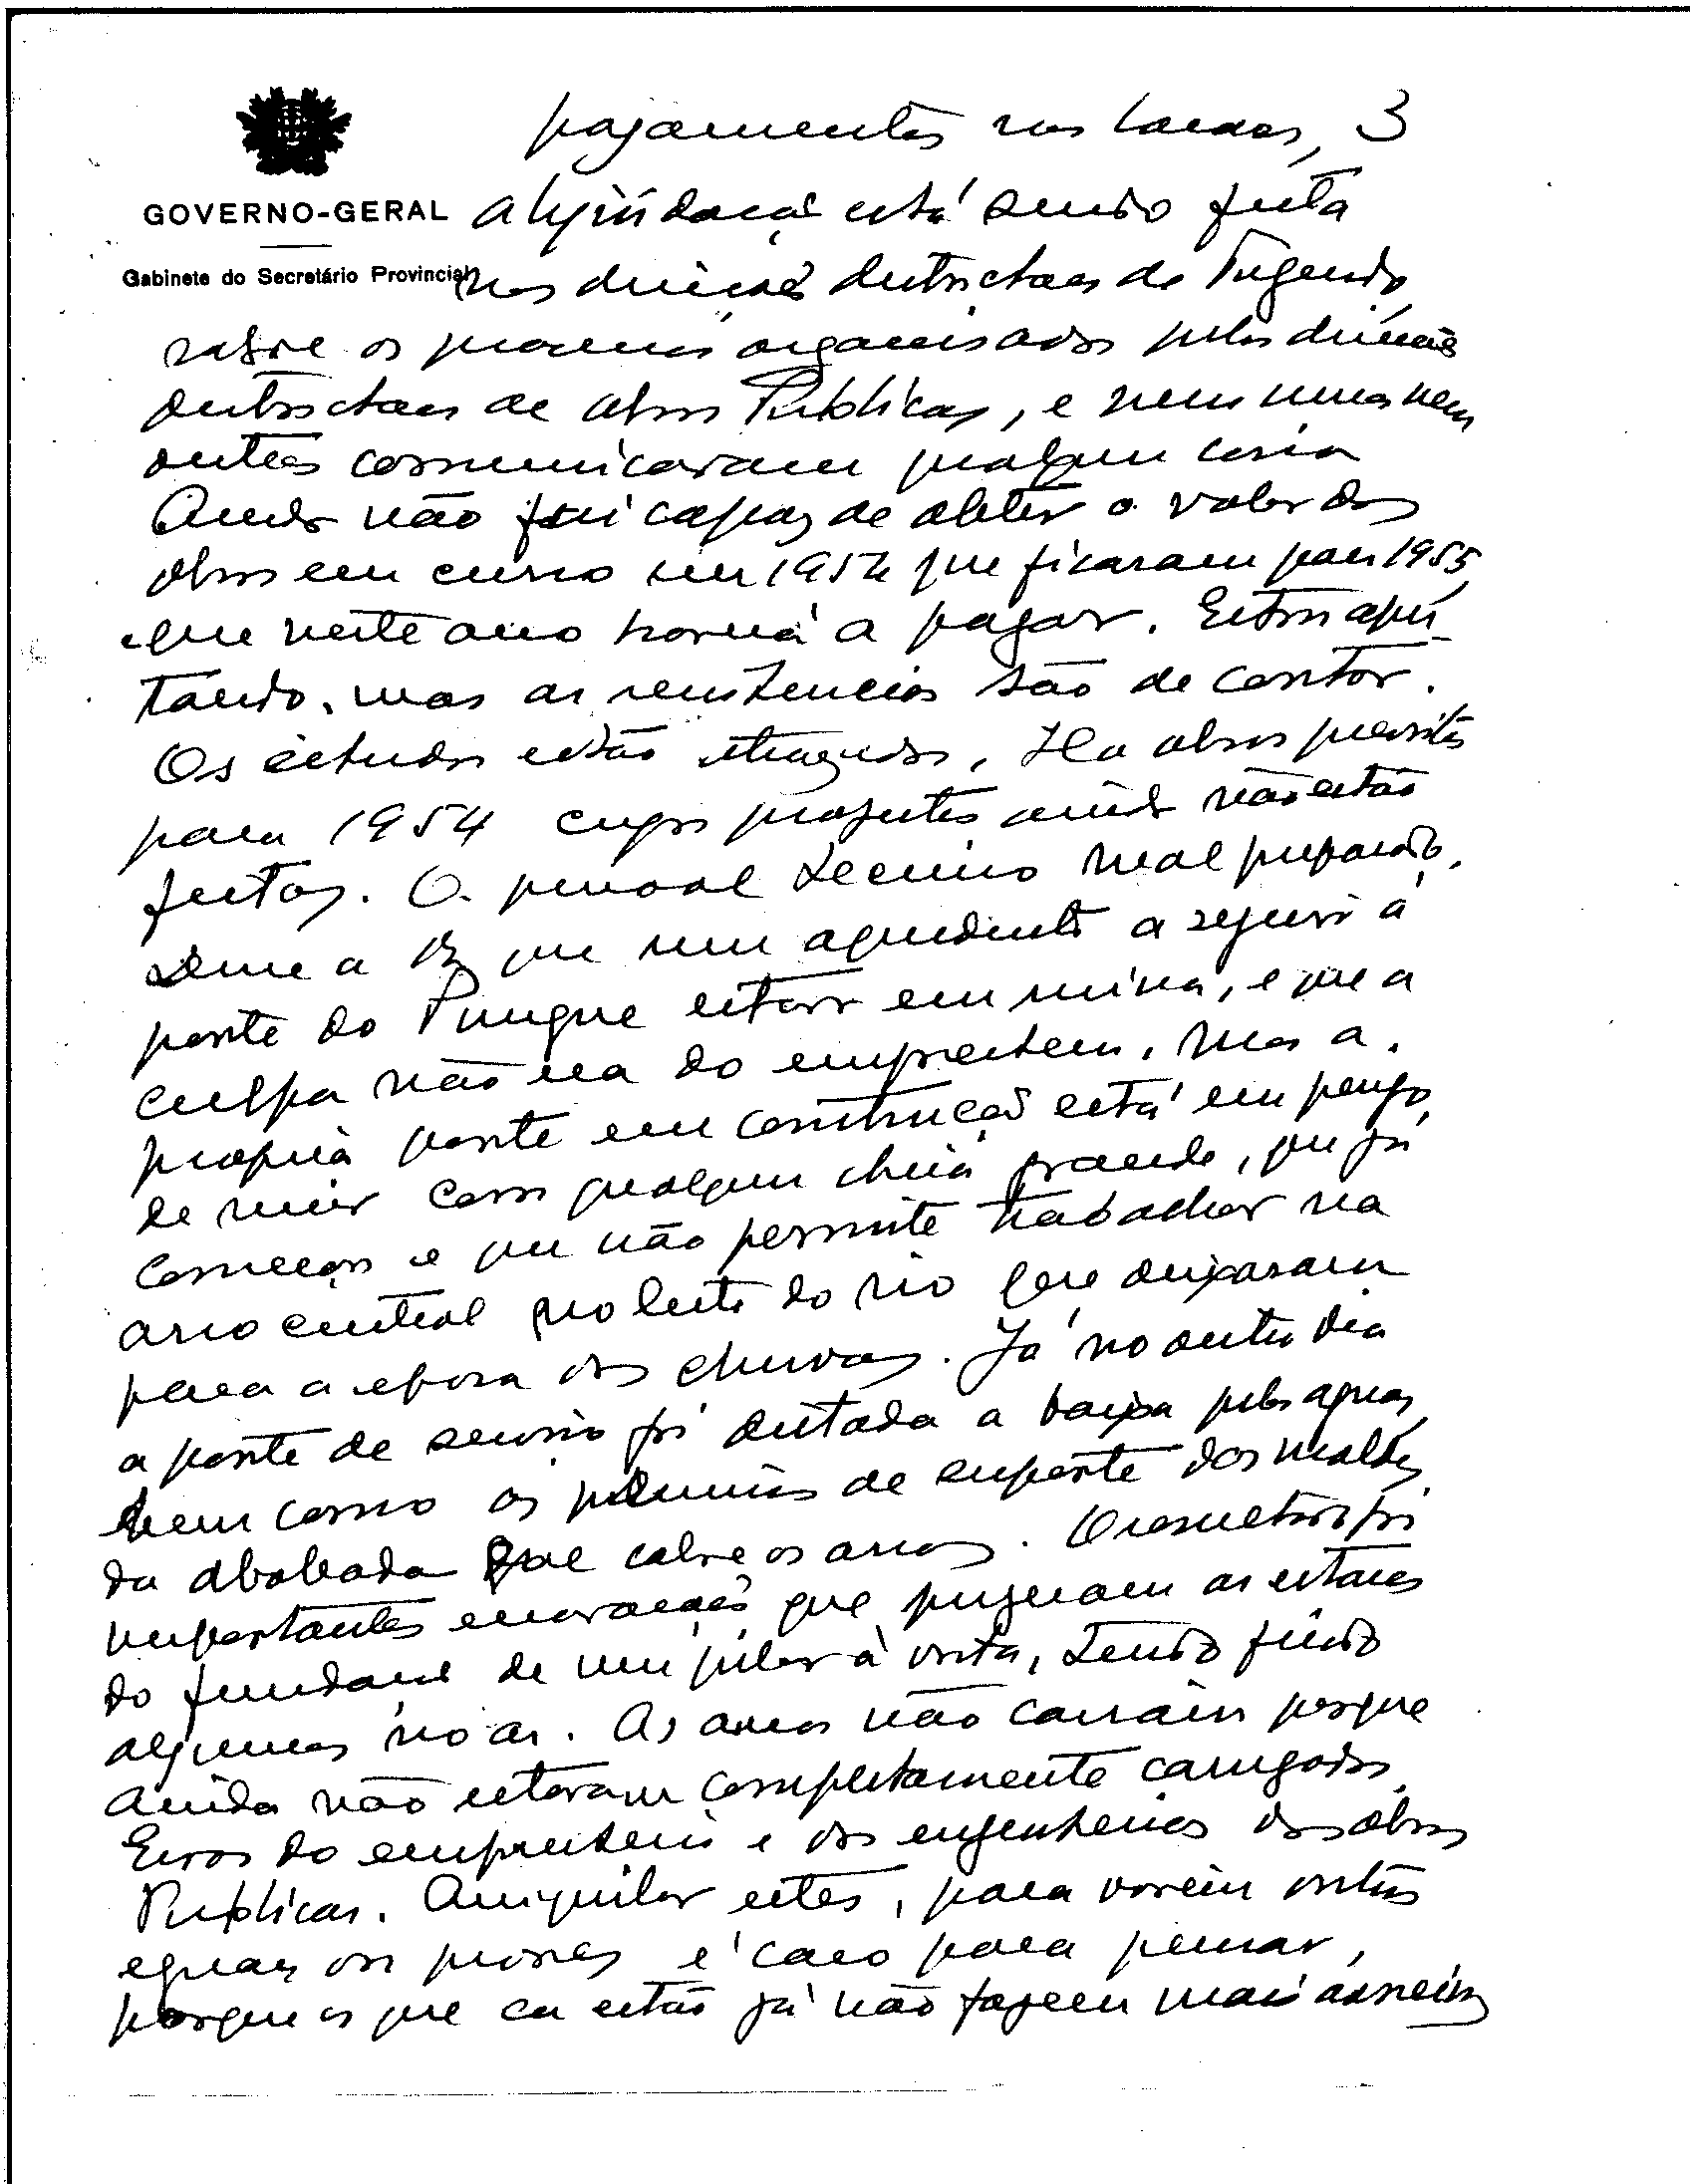 pagamentos nas         3
GOVERNO-GERAL
a liquidação está sendo feita
Gabinete do Secretário Provincial
nas direcções districtaes de Fazenda
sobre os processos organisados pelas direcções
districtaes de obras Publicas, e nem umas nem
outras comunicaram qualquer coisa
Ainda não fui capaz de obter o valor das
obras em curso em 1954 que ficaram para 1955,
e que neste ano haverá a pagar. Estou apu-
rando, mas as resistencias são de          .
Os estudos estão atrazados. Ha obras previstas
para 1954 cujos projectos ainda não estão
feitos. O pessoal tecnico mal preparado.
Deu-me a          que um aqueducto a seguir á
ponte do Pungue estava em ruina, e que a
culpa não era do empreiteiro, mas a
propria ponte em construção está em perigo
de ruir com qualquer cheia grande, que já
começou e que não permite trabalhar na
arco central no leito do rio que deixaram
para a epoca das chuvas. Já no outro dia
a ponte de serviço foi deitada a baixo pelas aguas,
bem como os          de suporte dos moldes
da abobada que cobre os arcos. O resultado foi
importantes escavações que puzeram as estacas
do          de um pilar á vista, tendo ficado
algumas no ar. Os arcos não cairam porque
ainda não estavam completamente carregados.
Erros do empreiteiro e dos engenheiros das obras
Publicas. Aniquilar estes, para virem outros
eguaes ou piores é caso para pensar,
porque os que ca estão já não fazem mais asneiras